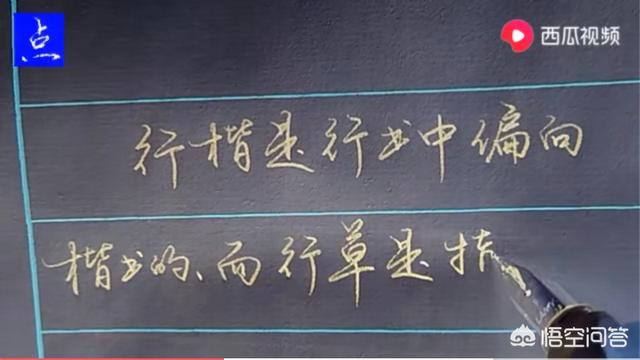 点
西瓜视频
行楷是行书中偏向
楷书的、而行草是指
悟空问答